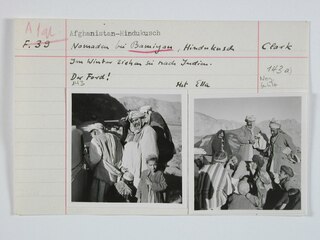 Afgl
F. 39
Afghanistan-Hindukusch
Nomaden bei Bamigan, Hindukusch
Clark
Im Winter ziehen sie nach Indien.
143a)
Der Ford!
Mit Ella